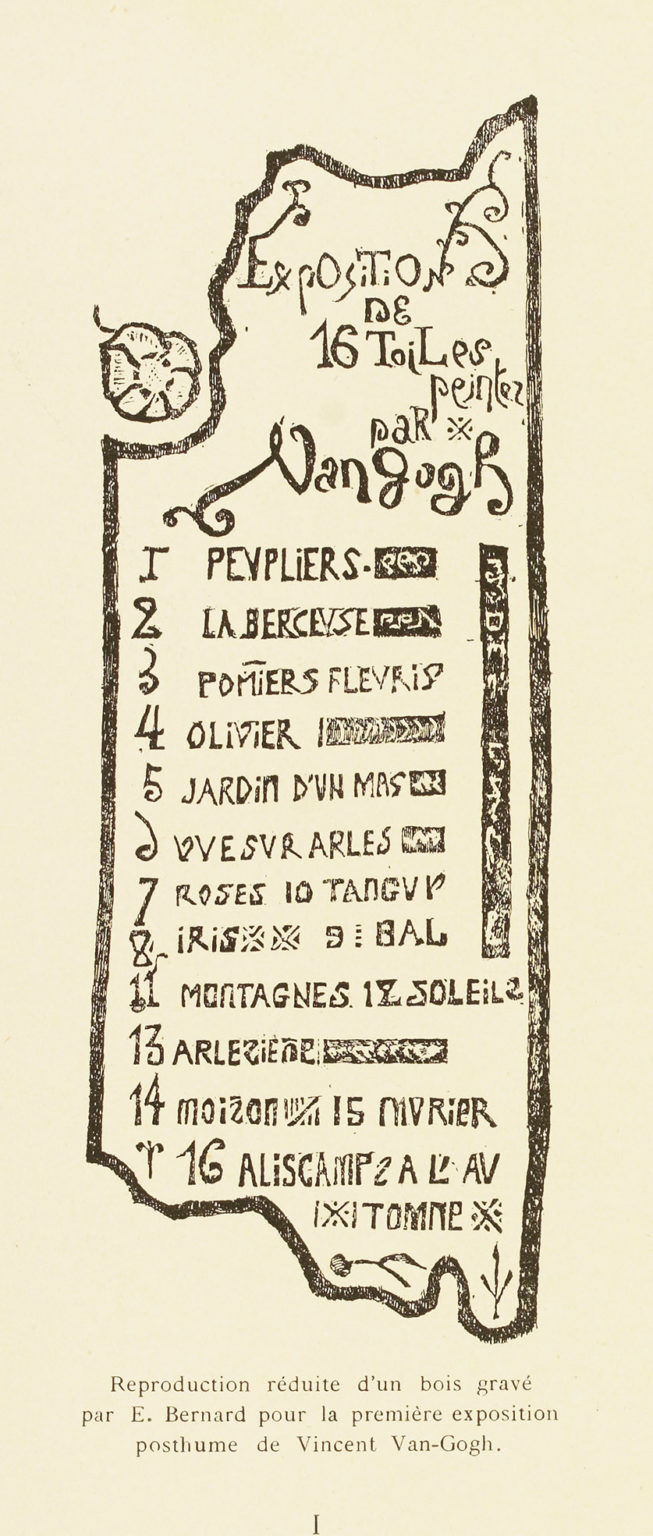 ExPOSiTiON
DE
16 ToiLes
peintes
paR ※
Van gogh
1 PEVPLiERS.
2 LA BERCEVSE
3 POM̅iERS FLEVRiS
4 OLiViER
5 JARDiN D'VN MAS
6 VVE SVR ARLES
7 ROSES 10 TANGVY
8 iRiS※※ 9 BAL
11 MONTAGNES. 12 SOLEiLS
13 ARLEZiENE
14 MOiZON 15 MVRiER
16 ALiSCAMPS A L'AV
TOMNE ※
Reproduction réduite d'un bois gravé
par E. Bernard pour la première exposition
posthume de Vincent Van-Gogh.
I